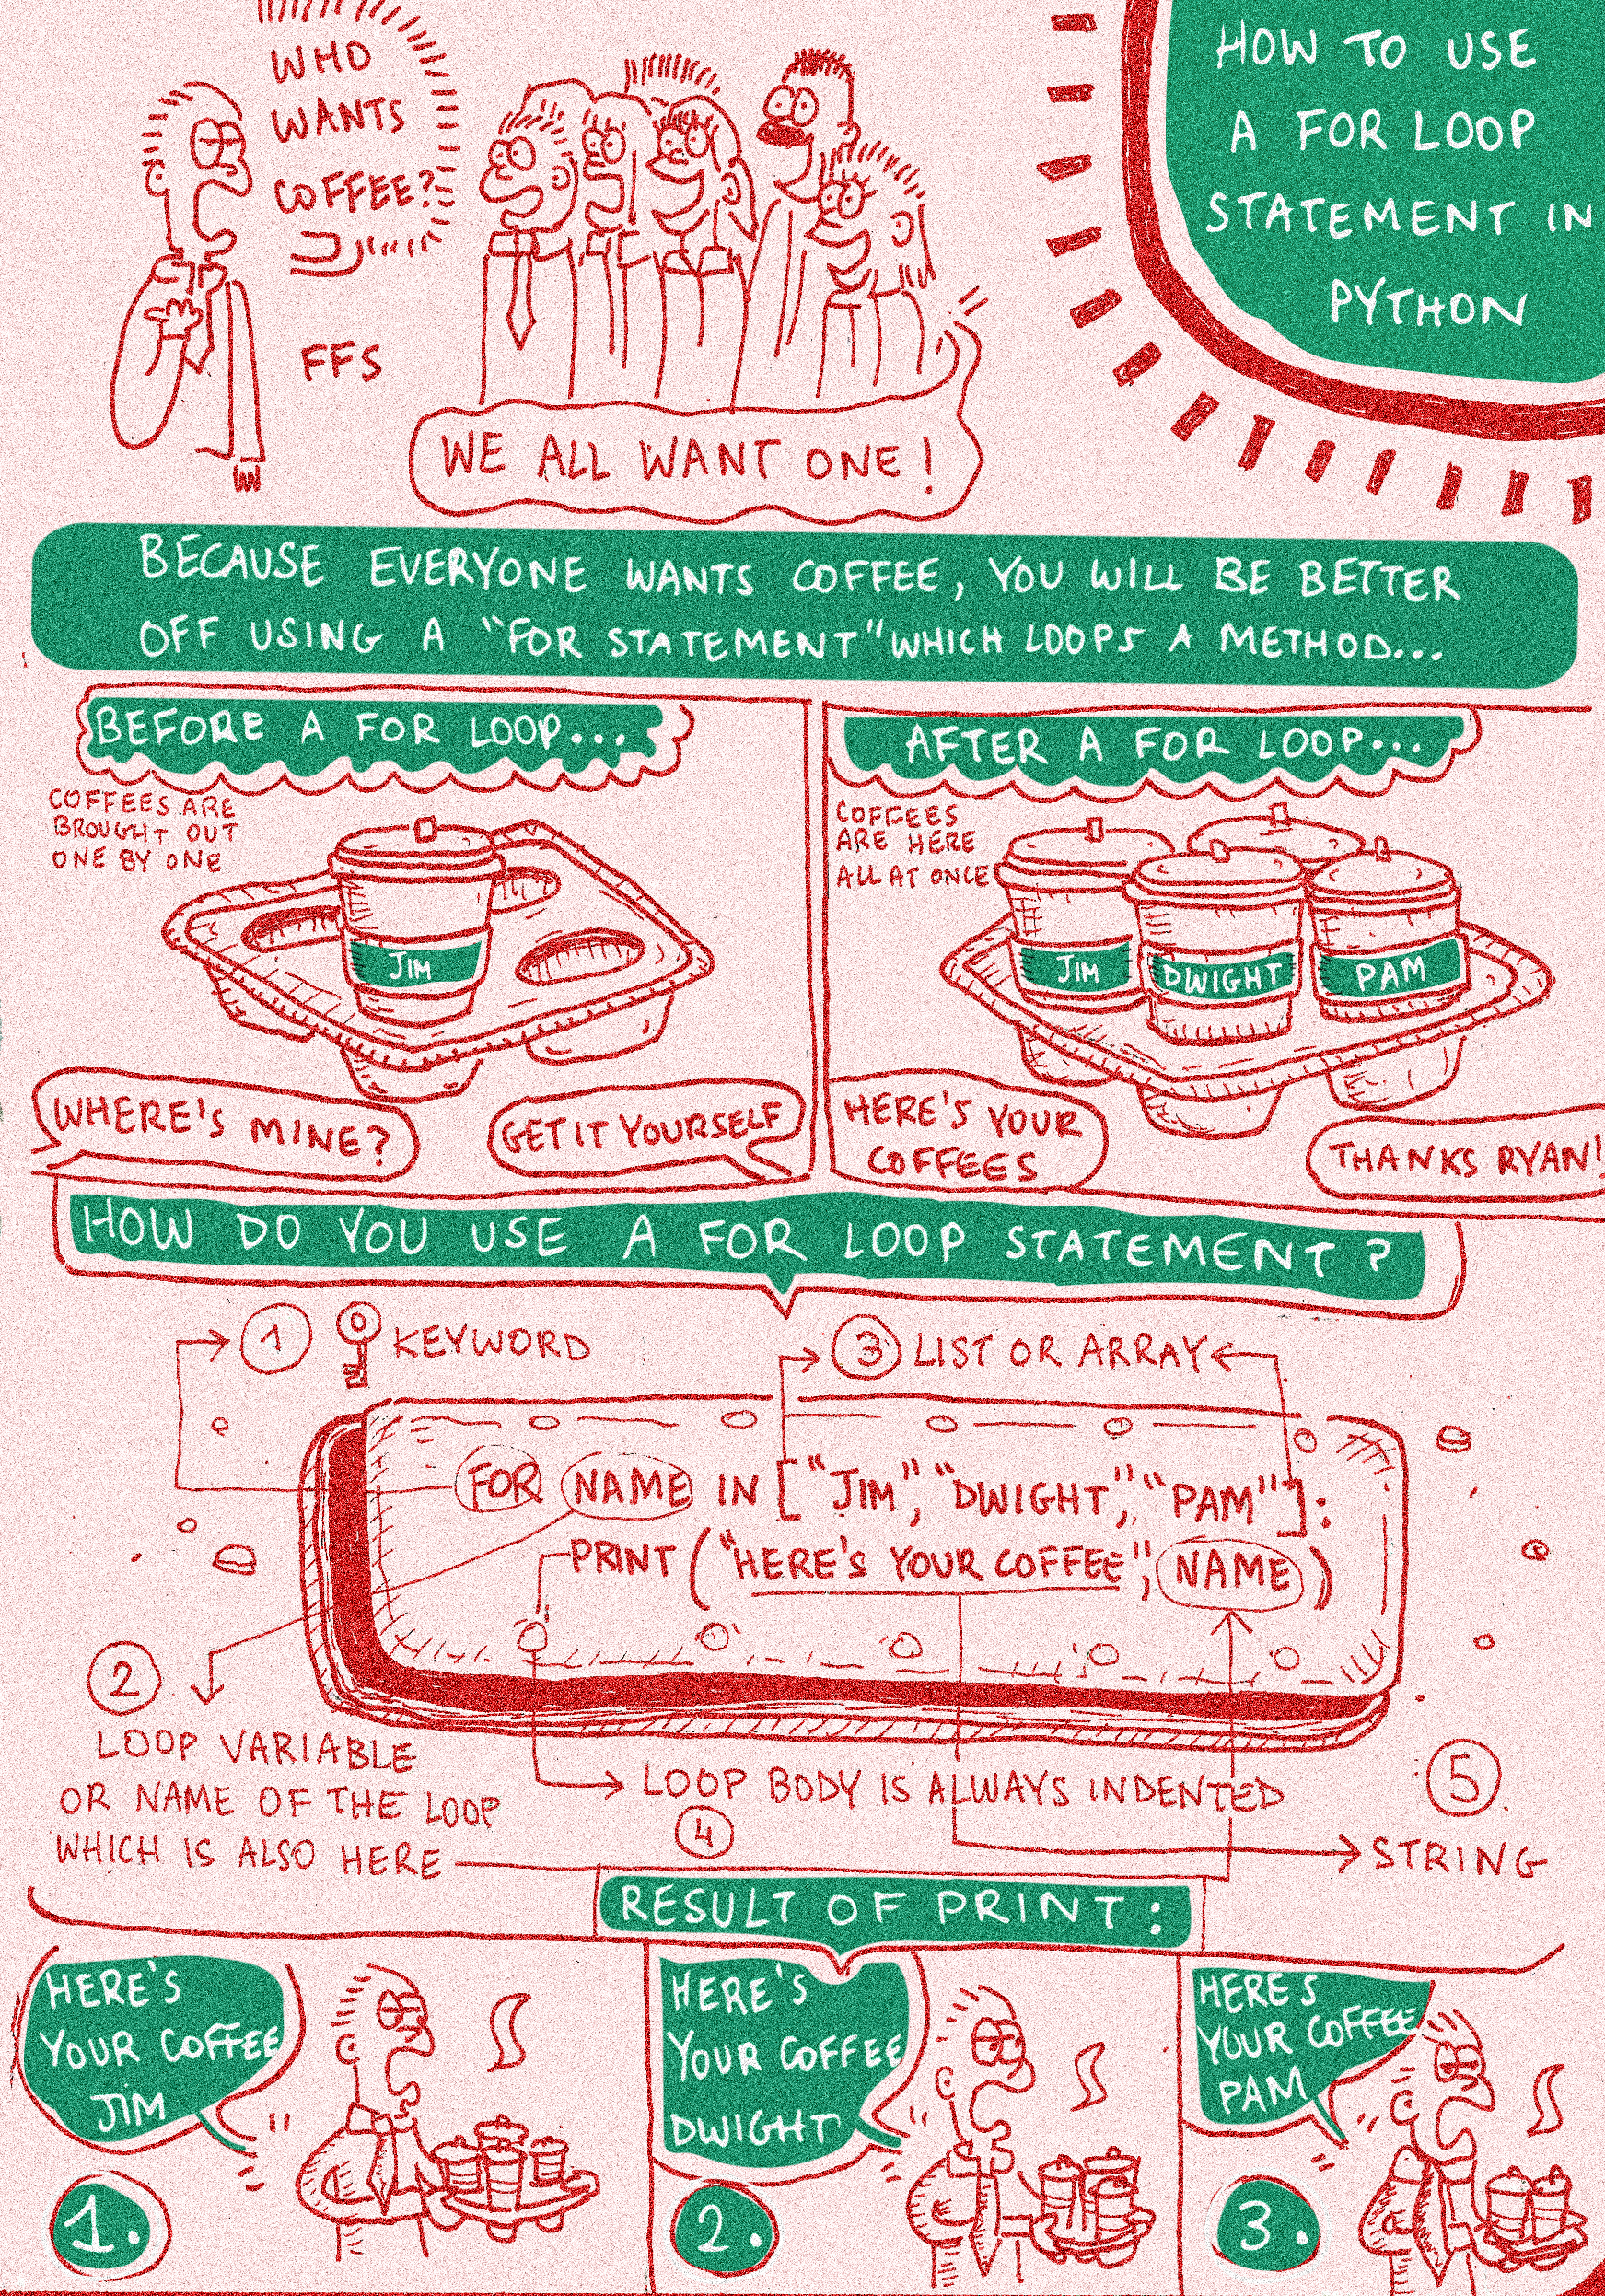 WHO
WANTS
COFFEE?
FFS
WE ALL WANT ONE!
HOW TO USE
A FOR LOOP
STATEMENT IN
PYTHON
BECAUSE EVERYONE WANTS COFFEE, YOU WILL BE BETTER
OFF USING A "FOR STATEMENT" WHICH LOOPS A METHOD...
BEFORE A FOR LOOP...
COFFEES ARE
BROUGHT OUT
ONE BY ONE
JIM
WHERE'S MINE?
GET IT YOURSELF
AFTER A FOR LOOP...
COFFEES
ARE HERE
ALL AT ONCE
JIM
DWIGHT
PAM
HERE'S YOUR
COFFEES
THANKS RYAN!
HOW DO YOU USE A FOR LOOP STATEMENT?
1 KEYWORD
3 LIST OR ARRAY
FOR NAME IN ["JIM", "DWIGHT", "PAM"]:
PRINT ("HERE'S YOUR COFFEE", NAME)
2
LOOP VARIABLE
OR NAME OF THE LOOP
WHICH IS ALSO HERE
LOOP BODY IS ALWAYS INDENTED
4
5
STRING
RESULT OF PRINT:
HERE'S
YOUR COFFEE
JIM
1.
HERE'S
YOUR COFFEE
DWIGHT
2.
HERE'S
YOUR COFFEE
PAM
3.